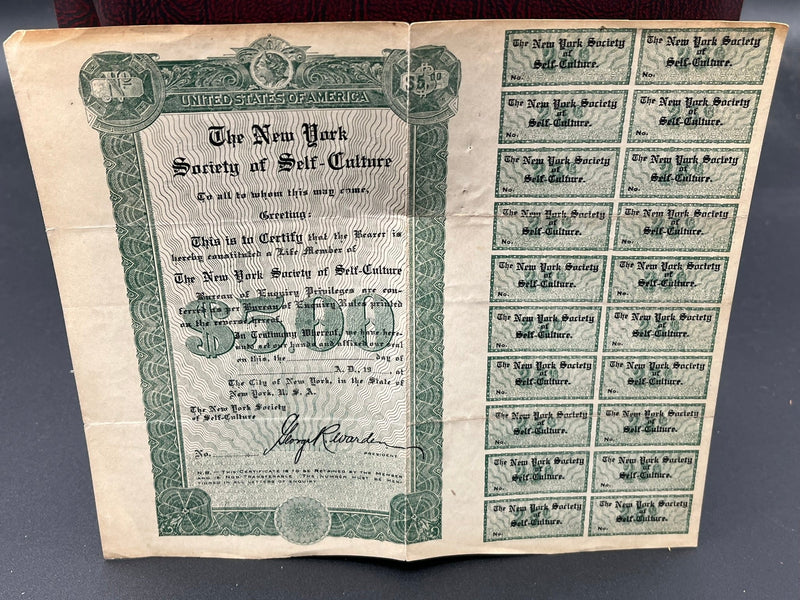 $5.00
UNITED STATES OF AMERICA
The New York
Society of Self-Culture
To all to whom this may come,
Greeting:
This is to Certify that the Bearer is
hereby constituted a Life Member of
The New York Society of Self-Culture
Bureau of Enquiry Privileges are con-
ferred as per Bureau of Enquiry Rules printed
on the reverse hereof.
$5.00
In Testimony Whereof, we have here-
unto set our hands and affixed our seal
on this, the day of
A. D., 19 , at
The City of New York, in the State of
New York, U. S. A.
The New York Society
of Self-Culture
George R. Warden
No. PRESIDENT.
N.B.—THIS CERTIFICATE IS TO BE RETAINED BY THE MEMBER
AND IS NON-TRANSFERABLE. THE NUMBER MUST BE MEN-
TIONED IN ALL LETTERS OF ENQUIRY.
The New York Society
of
Self-Culture.
No.
The New York Society
of
Self-Culture.
No.
The New York Society
of
Self-Culture.
No.
The New York Society
of
Self-Culture.
No.
The New York Society
of
Self-Culture.
No.
The New York Society
of
Self-Culture.
No.
The New York Society
of
Self-Culture.
No.
The New York Society
of
Self-Culture.
No.
The New York Society
of
Self-Culture.
No.
The New York Society
of
Self-Culture.
No.
The New York Society
of
Self-Culture.
No.
The New York Society
of
Self-Culture.
No.
The New York Society
of
Self-Culture.
No.
The New York Society
of
Self-Culture.
No.
The New York Society
of
Self-Culture.
No.
The New York Society
of
Self-Culture.
No.
The New York Society
of
Self-Culture.
No.
The New York Society
of
Self-Culture.
No.